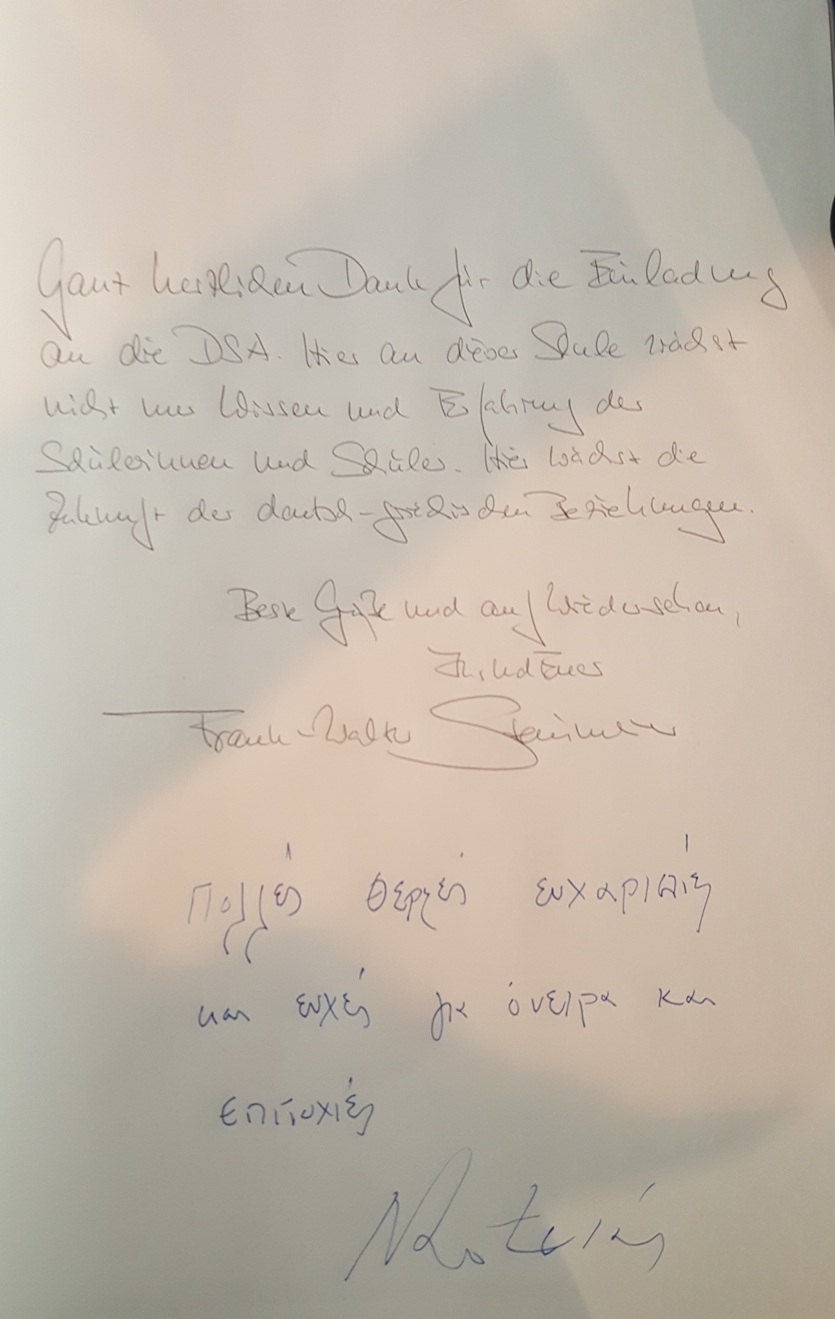 Ganz herzlichen Dank für die Einladung
an die DSA. Hier an dieser Schule wächst
nicht nur Wissen und Erfahrung der
Schülerinnen und Schüler. Hier wächst die
Zukunft der deutsch-griechischen Beziehungen.
Beste Grüße und auf Wiedersehen,
Ihr und Euer
Frank-Walter Steinmeier
Πολλές θερμές ευχαριστίες
και ευχές για όνειρα και
επιτυχίες